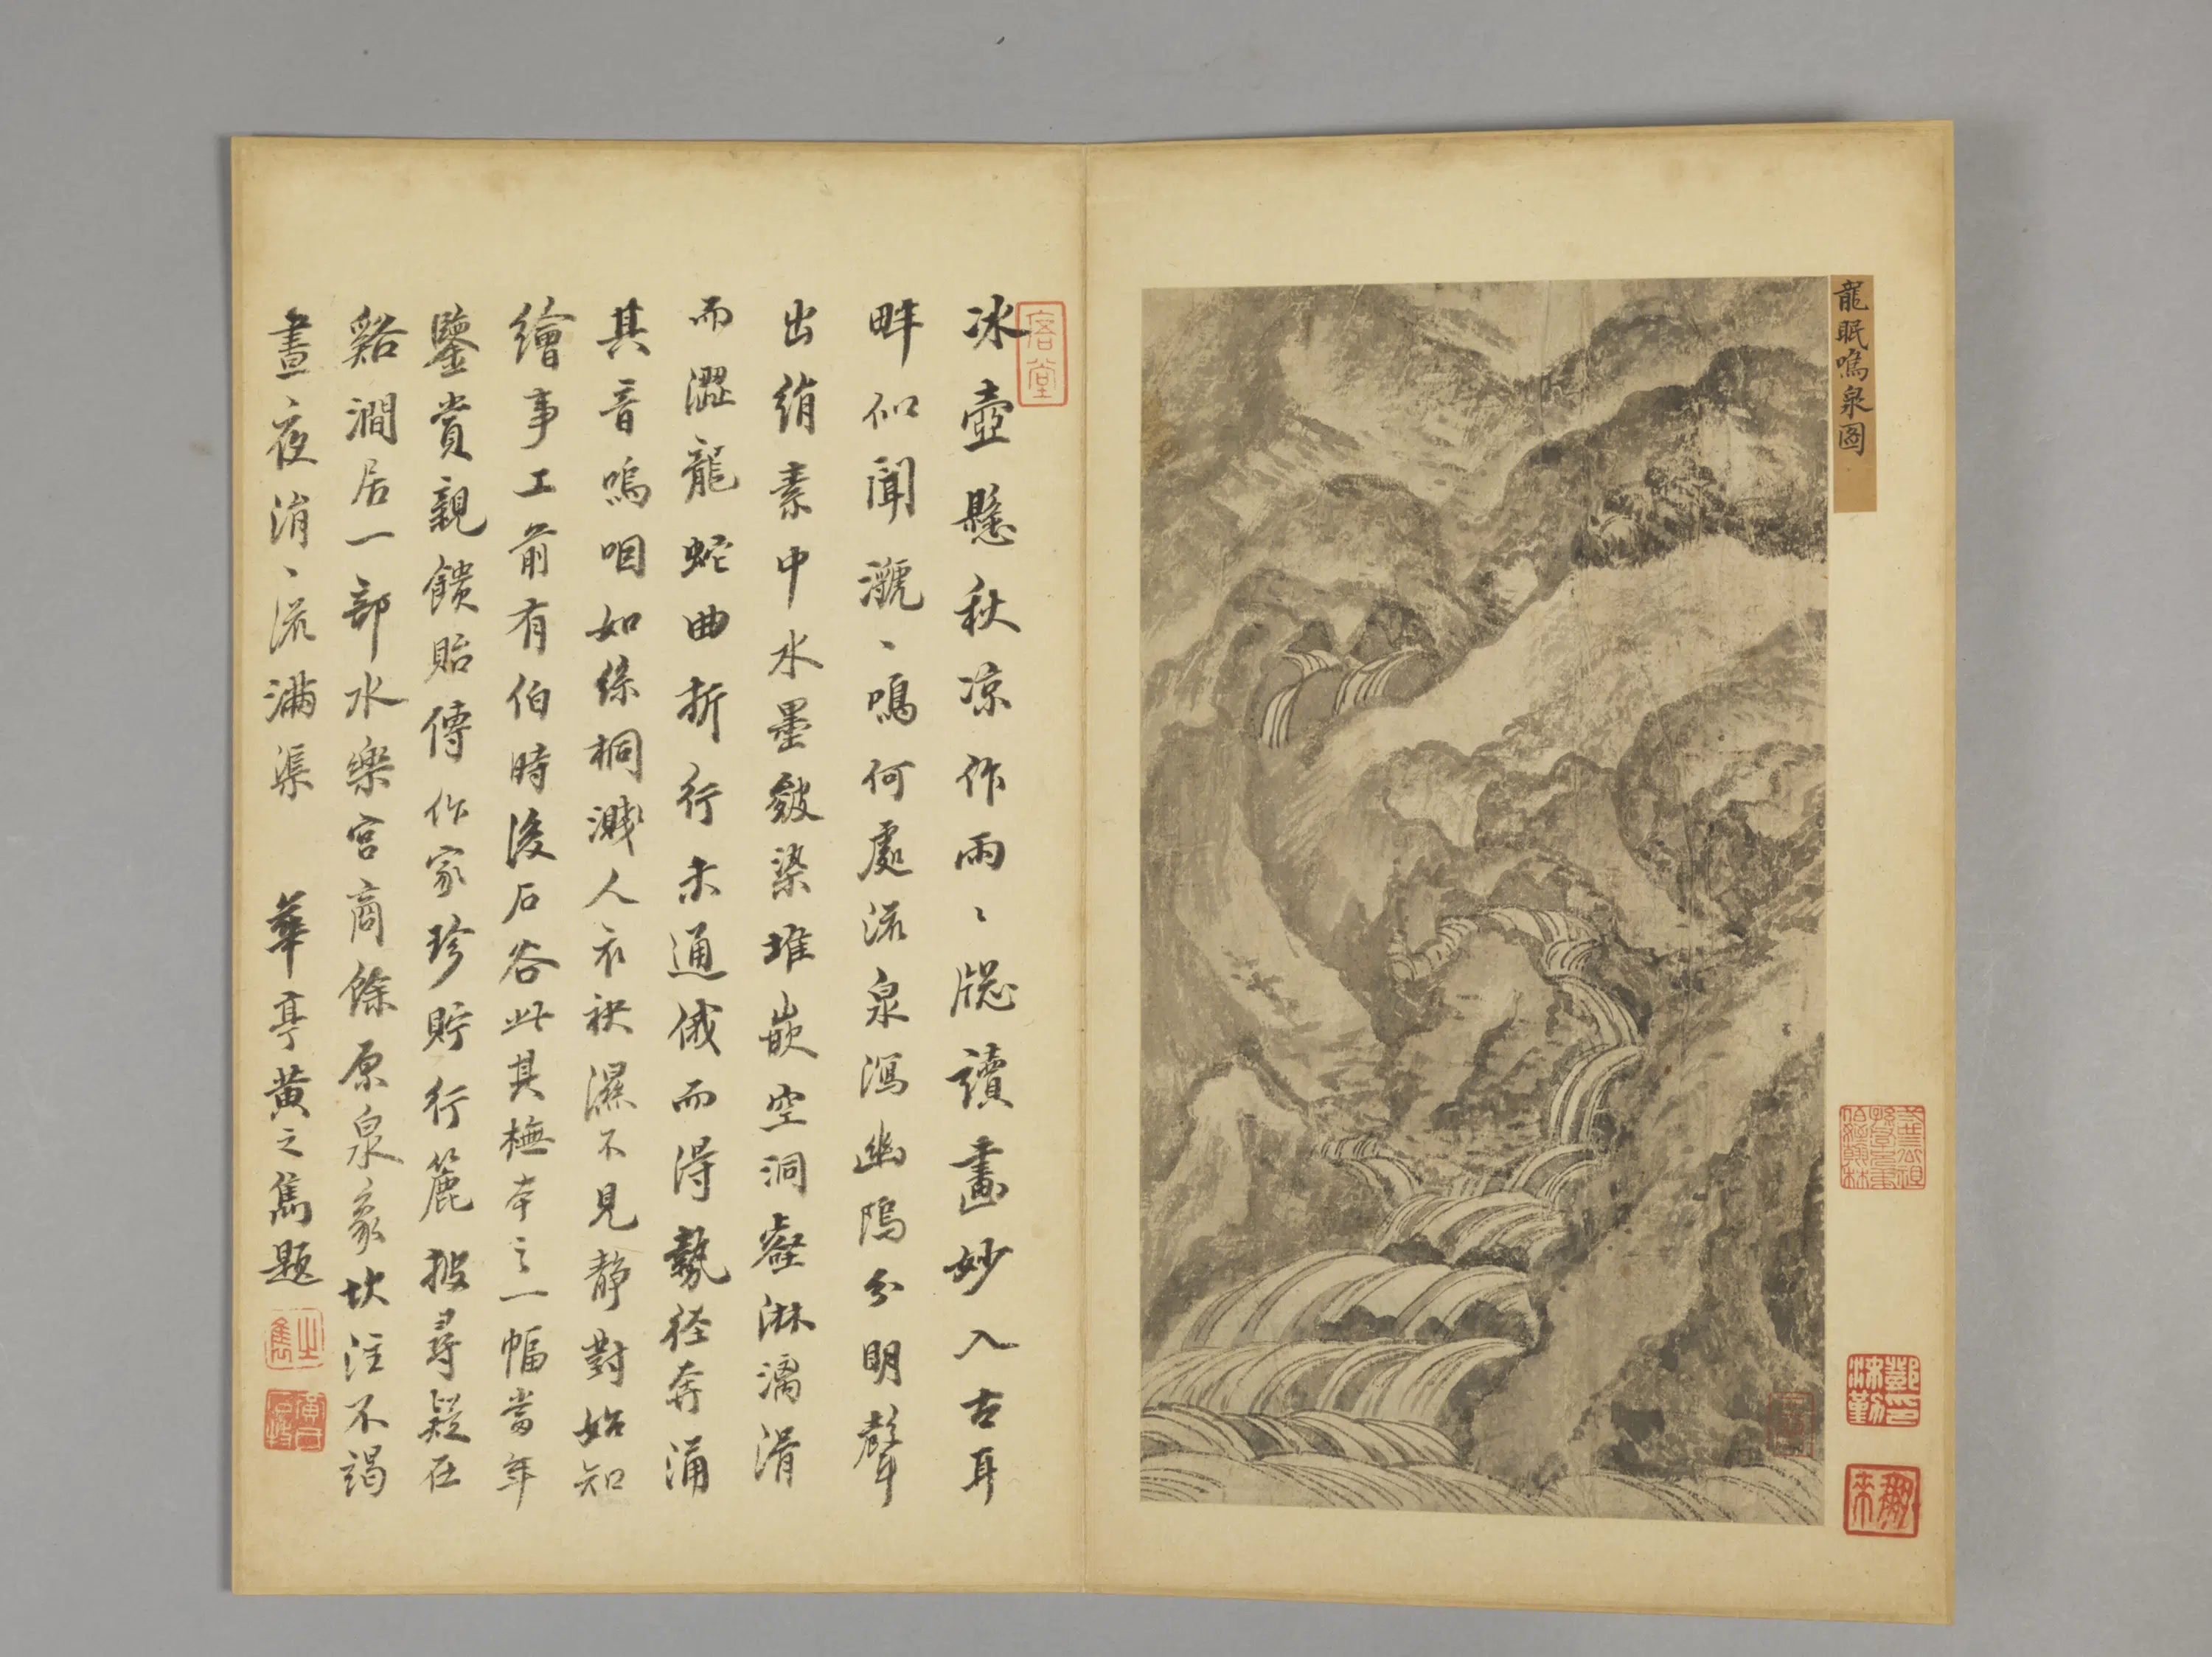 龍眠鳴泉圖
冰壺懸秋凉作雨〻牕讀畫妙入古耳
畔似聞㶁〻鳴何處流泉瀉幽隖分明聲
出絹素中水墨皴染堆嵌空洞壑淋漓滑
而澀龍蛇曲折行未通俄而得勢徑奔涌
其音嗚咽如絲桐濺人衣袂濕不見靜對始知
繪事工前有伯時後石谷此其橅本之一幅當年
鑒賞親饋貽傳作家珍貯行簏披尋疑在
谿澗居一部水樂宮商餘原泉象坎注不竭
晝夜涓〻流滿渠 華亭黃之雋題
之雋